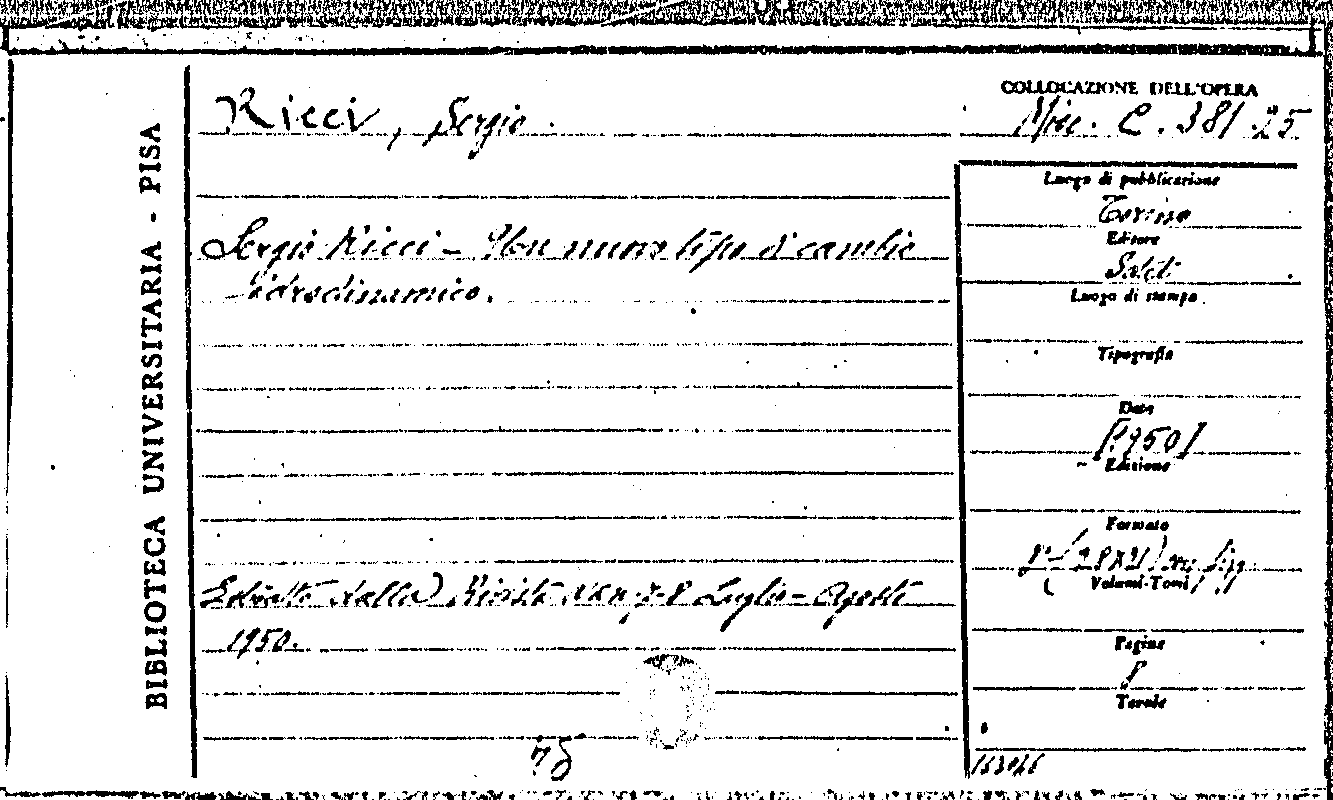 BIBLIOTECA UNIVERSITARIA - PISA
Ricci, Sergio.
COLLOCAZIONE DELL'OPERA
Misc. C. 38/25
Sergio Ricci - Un nuovo tipo di cambio
idrodinamico.
Luogo di pubblicazione
Torino
Editore
Luogo di stampa
Tipografia
Data
[1950]
Edizione
Formato
8° (28x21) con fig.
Volumi-Tomi
Estratto dalla Rivista 7-8 Luglio-Agosto
1950.
Pagine
8
Tavole